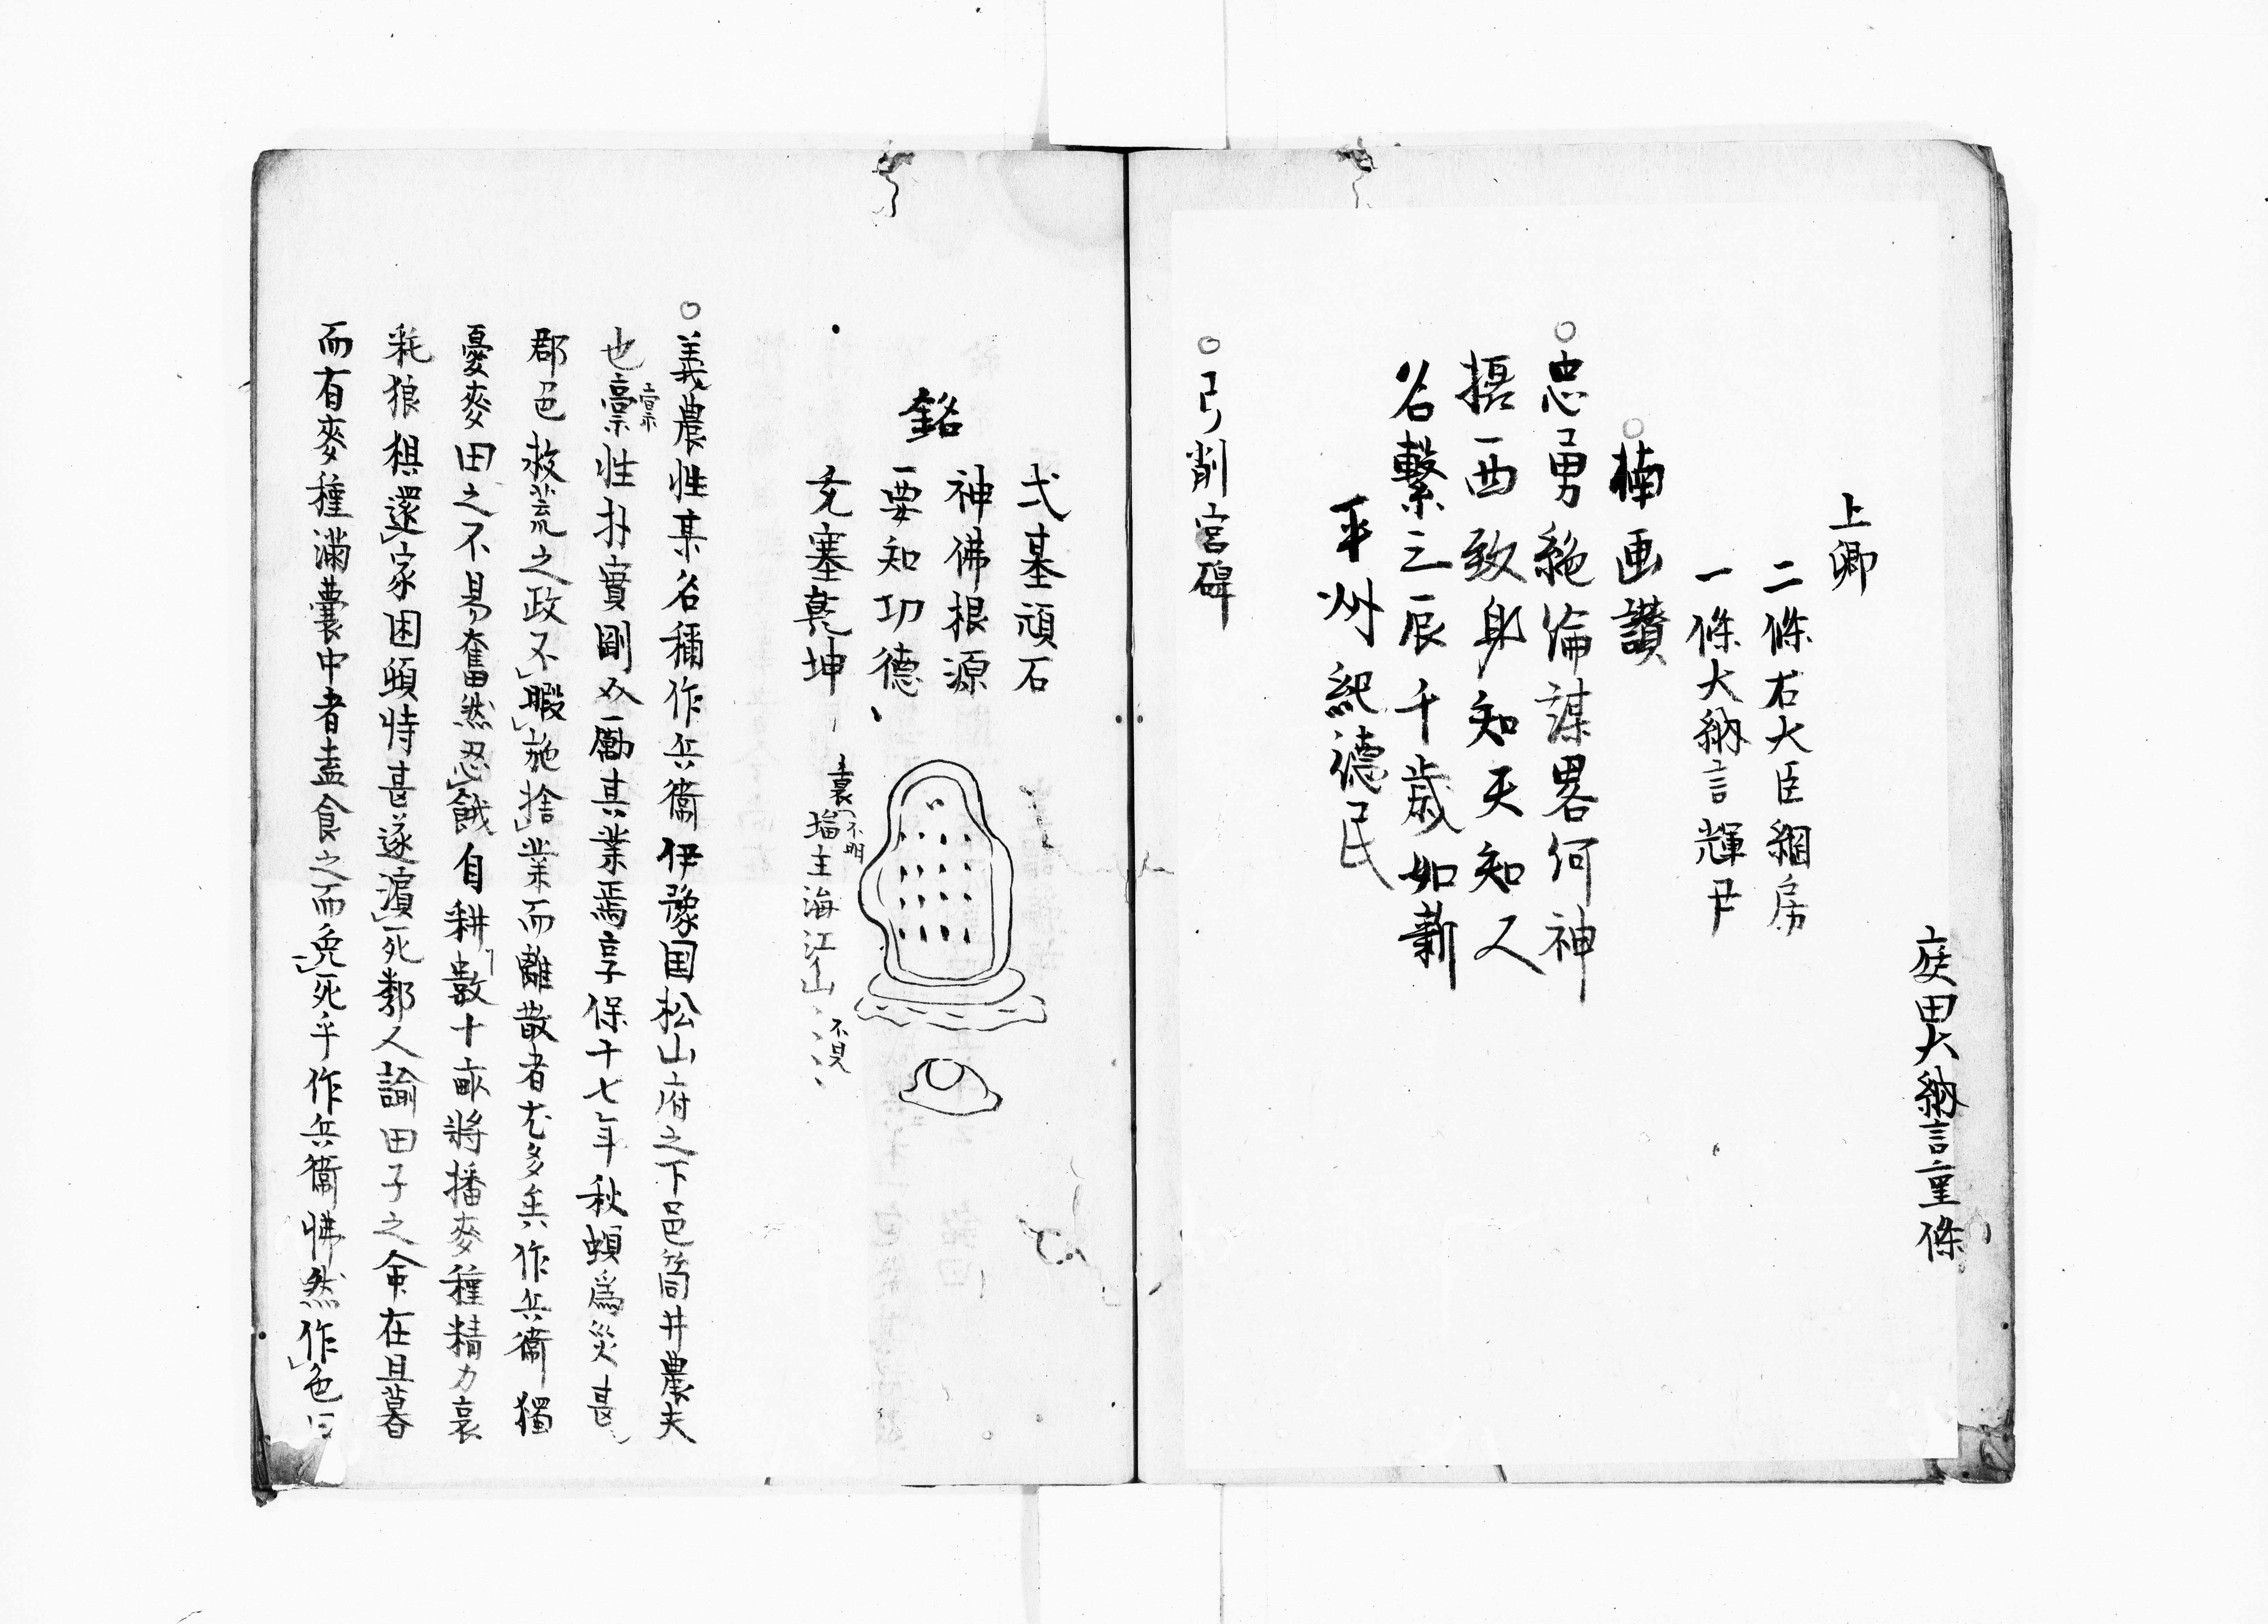 庭田大納言重條
上卿
二條右大臣綱房
一條大納言輝尹
○楠画讃
○忠勇絶倫謀畧何神
據西致身知天知人
名繋三辰千歳如新
平州紀德民
○弓削宮碑
弌基頑石
神佛根源
銘 要知功德
充塞乾坤
裏不明
施主海江山 不見
○義農姓某名稱作兵衞伊豫国松山府之下邑筒井農夫
也稟稟性扑實剛毅勵其業焉享保十七年秋蝗爲災甚
郡邑救荒之政不暇施捨業而離散者尤多矣作兵衞獨
憂麥田之不易奮然忍餓自耕數十畝將播麥種精力衰
耗狼狽還家困頓特甚遂濱死鄰人諭曰子之命在旦暮
而有麥種滿囊中者盍食之而免死乎作兵衞怫然作色曰